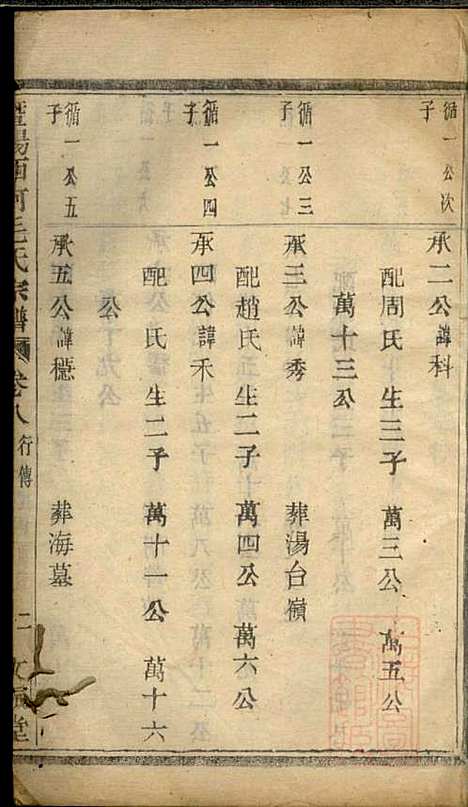 循一公次子
承二公諱科
配周氏 生三子 萬三公 萬五公
萬十三公
循一公三子
承三公諱秀 葬湯台嶺
配趙氏 生二子 萬四公 萬六公
循一公四子
承四公諱禾
配 氏 生二子 萬十一公 萬十六
公
循一公五子
承五公諱穩 葬海墓
暨陽西河毛氏宗譜 卷八 行傳 二